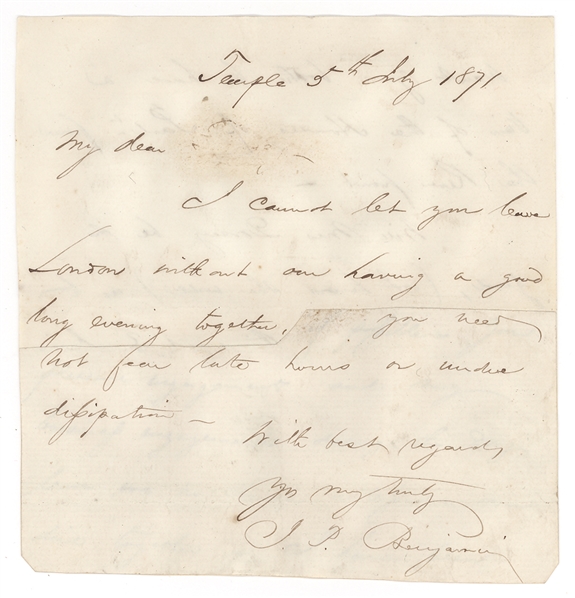 Temple 5th July 1871
My dear
I cannot let you leave
London without our having a good
long evening together, you need
not fear late hours or undue
dissipation —
With best regards,
Yrs very truly
J. P. Benjamin